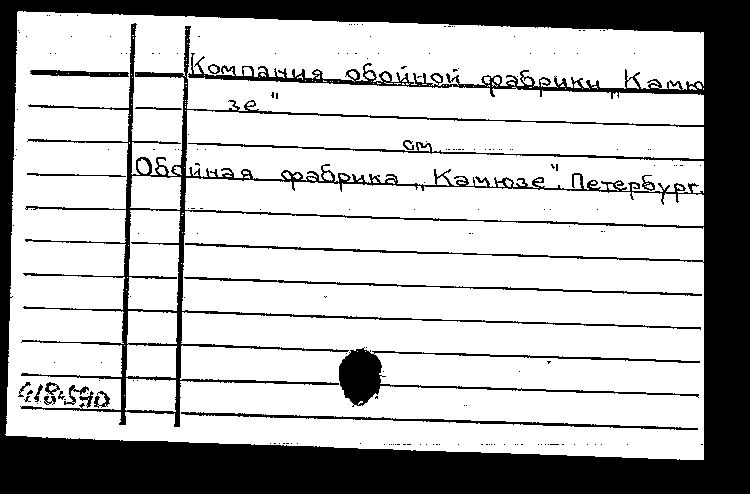 Компания обойной фабрики „Камю
зе"
см.
Обойная фабрика „Камюзе". Петербург.
418590